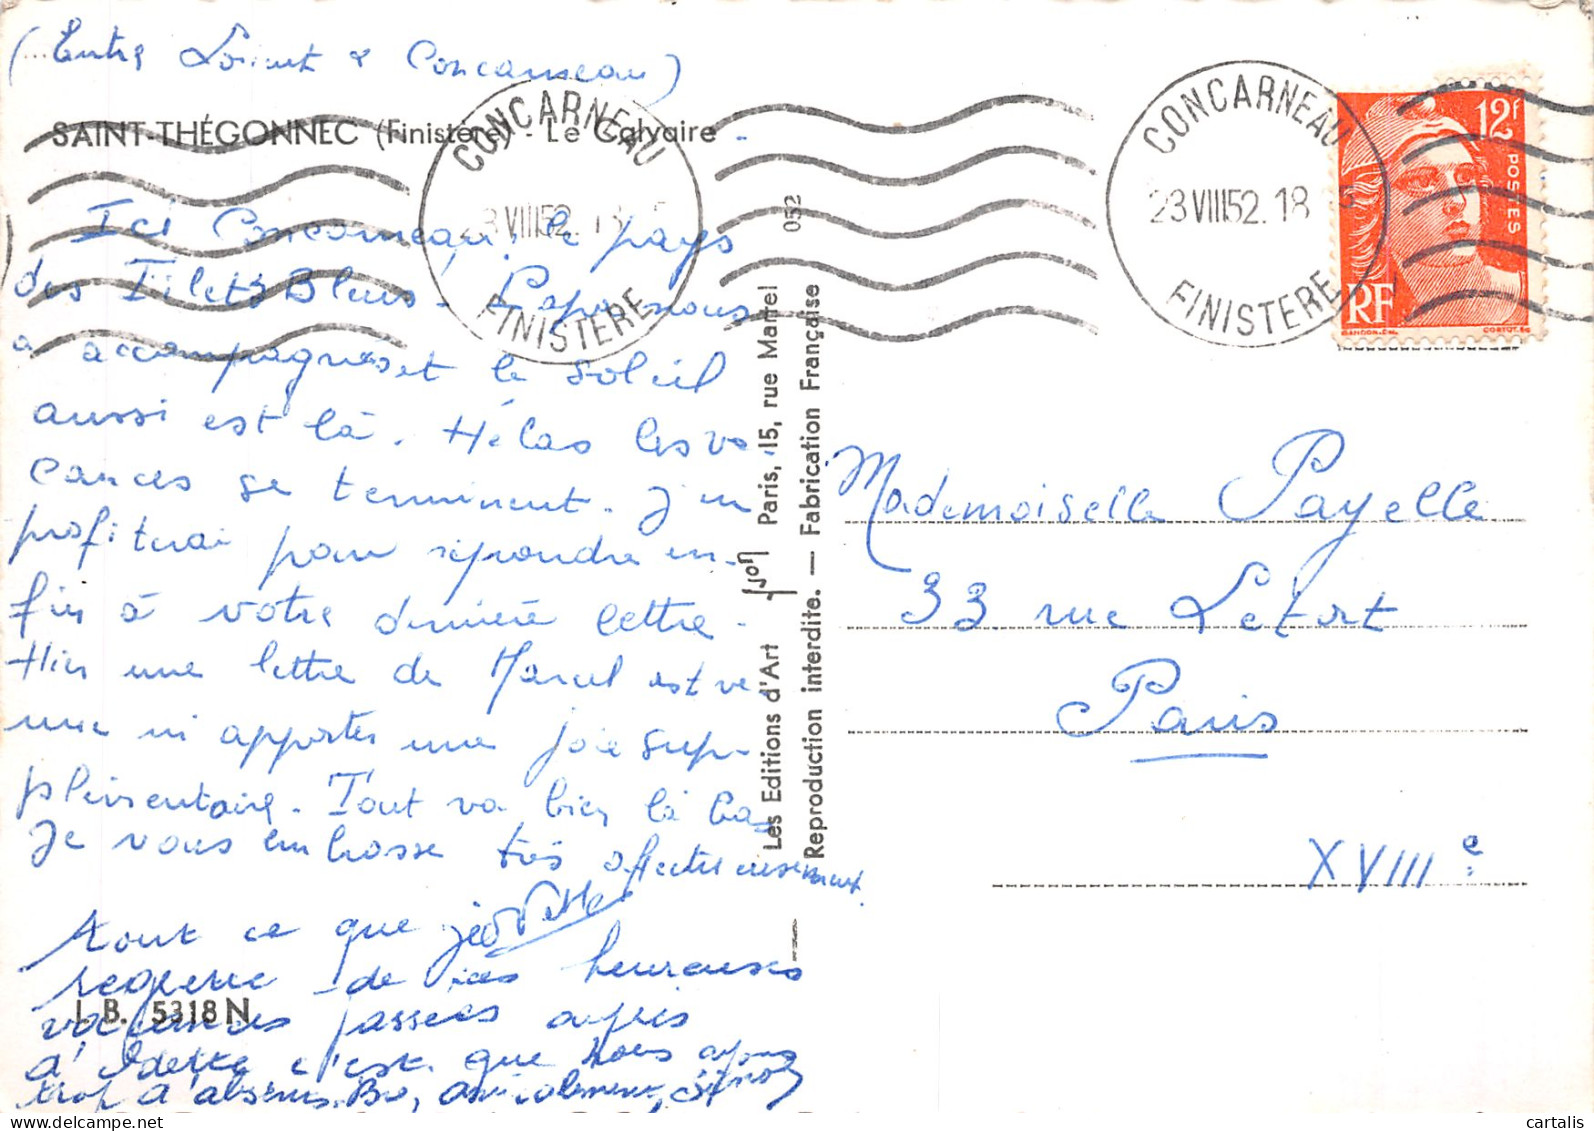 (Entre Lorient & Concarneau)
SAINT-THÉGONNEC (Finistère) - Le Calvaire
CONCARNEAU
23 VIII 52. 18
FINISTERE
CONCARNEAU
23 VIII 52. 18
FINISTERE
12f
POSTES
RF
GANDON.
CORTOT.SC
Ici Concarneau, le pays
des Filets Bleus. Papa nous
a accompagnés et le soleil
aussi est là. Hélas les va
cances se terminent. J'en
profiterai pour répondre en-
fin à votre dernière lettre.
Hier une lettre de Marcel est ve
nue m'apporter une joie sup-
plémentaire. Tout va bien là bas
Je vous embrasse très affectueusement.
Odette
tout ce que je
regrette de ces heureuses
vacances passées auprès
d'Odette c'est que nous ayons
trop d'absents. amicalement,
I. B. 5318 N
Les Editions d'Art Yvon Paris, 15, rue Martel
Reproduction interdite. — Fabrication Française
052
Mademoiselle Payelle
33 rue Letort
Paris
XVIIIe
cartalis